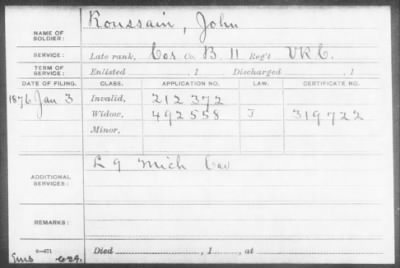 NAME OF SOLDIER: Roussain, John
SERVICE: Late rank, Cor Co. B. 11 Reg't V R C.
TERM OF SERVICE: Enlisted , 1 Discharged , 1
DATE OF FILING. CLASS. APPLICATION NO. LAW. CERTIFICATE NO.
1876 Jan 3 Invalid, 212372
Widow, 492558 J 319722
Minor,
ADDITIONAL SERVICES: L 9 Mich Cav
REMARKS:
Died , 1 , at